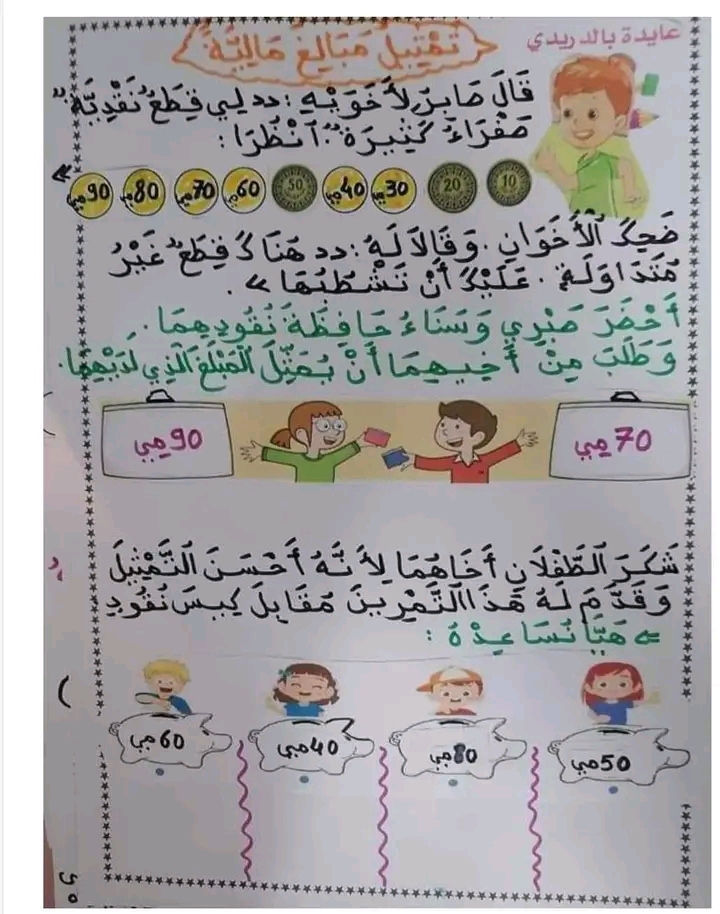 عايدة بالدريدي
تَمْثِيلُ مَبَالِغَ مَالِيَّةٍ
قَالَ صَابِرٌ لِأَخَوَيْهِ : « لِي قِطَعٌ نَقْدِيَّةٌ
صَفْرَاءُ كَثِيرَةٌ . اُنْظُرَا :
10 20 30مي 40مي 50 60مي 70مي 80مي 90مي »
ضَحِكَ الْأَخَوَانِ . وَقَالَا لَهُ : « هُنَاكَ قِطَعٌ غَيْرُ
مُتَدَاوَلَةٍ . عَلَيْكَ أَنْ تَشْطُبَهَا » .
أَحْضَرَ صَبْرِي وَسَنَاءُ حَافِظَةَ نُقُودِهِمَا .
وَطَلَبَ مِنْ أَخِيهِمَا أَنْ يُمَثِّلَ الْمَبْلَغَ الَّذِي لَدَيْهِمَا .
70 مي 90 مي
شَكَرَ الطِّفْلَانِ أَخَاهُمَا لِأَنَّهُ أَحْسَنَ التَّمْثِيلَ
وَقَدَّمَ لَهُ هَذَا التَّمْرِينَ مُقَابِلَ كِيسِ نُقُودٍ
= هَيَّا نُسَاعِدُهُ :
50مي 80مي 40مي 60مي